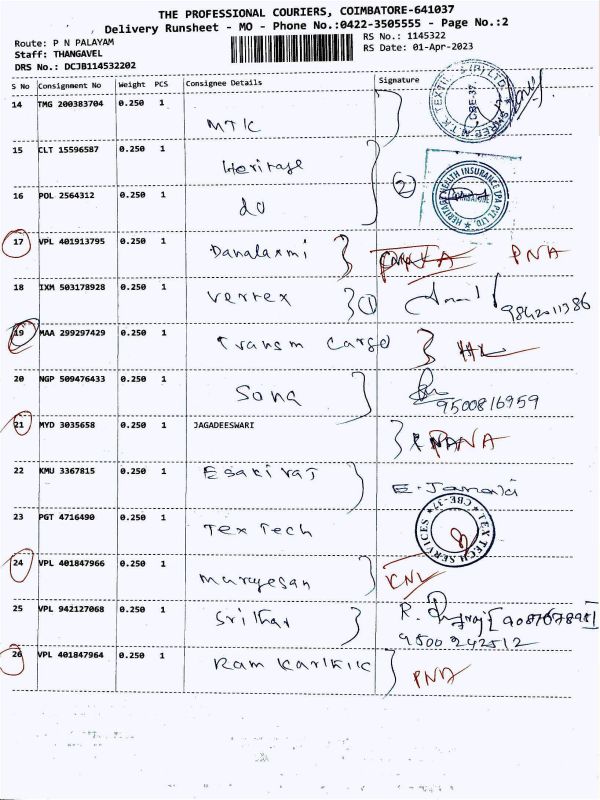 THE PROFESSIONAL COURIERS, COIMBATORE-641037
Delivery Runsheet - MO - Phone No.:0422-3505555 - Page No.:2
Route: P N PALAYAM
RS No.: 1145322
Staff: THANGAVEL
RS Date: 01-Apr-2023
DRS No.: DCJB114532202
S No Consignment No Weight PCS Consignee Details Signature
14 TMG 200383704 0.250 1 MTK
15 CLT 15596587 0.250 1 Heritage
16 POL 2564312 0.250 1 do 2
HERITAGE HEALTH INSURANCE TPA PVT LTD.
17 VPL 401913795 0.250 1 Danalaxmi PNA
18 IXM 503178928 0.250 1 Vertex 1
9842011386
19 MAA 299297429 0.250 1 Transm Cargo
20 NGP 509476433 0.250 1 Sona
9500816959
21 MYD 3035658 0.250 1 JAGADEESWARI PNA
22 KMU 3367815 0.250 1 Esakiraj
23 PGT 4716490 0.250 1 Tex Tech
TEX TECH SERVICES CBE-37
24 VPL 401847966 0.250 1 Murugesan CNL
25 VPL 942127068 0.250 1 Srithar
26 VPL 401847964 0.250 1 Ram Karthik PNA